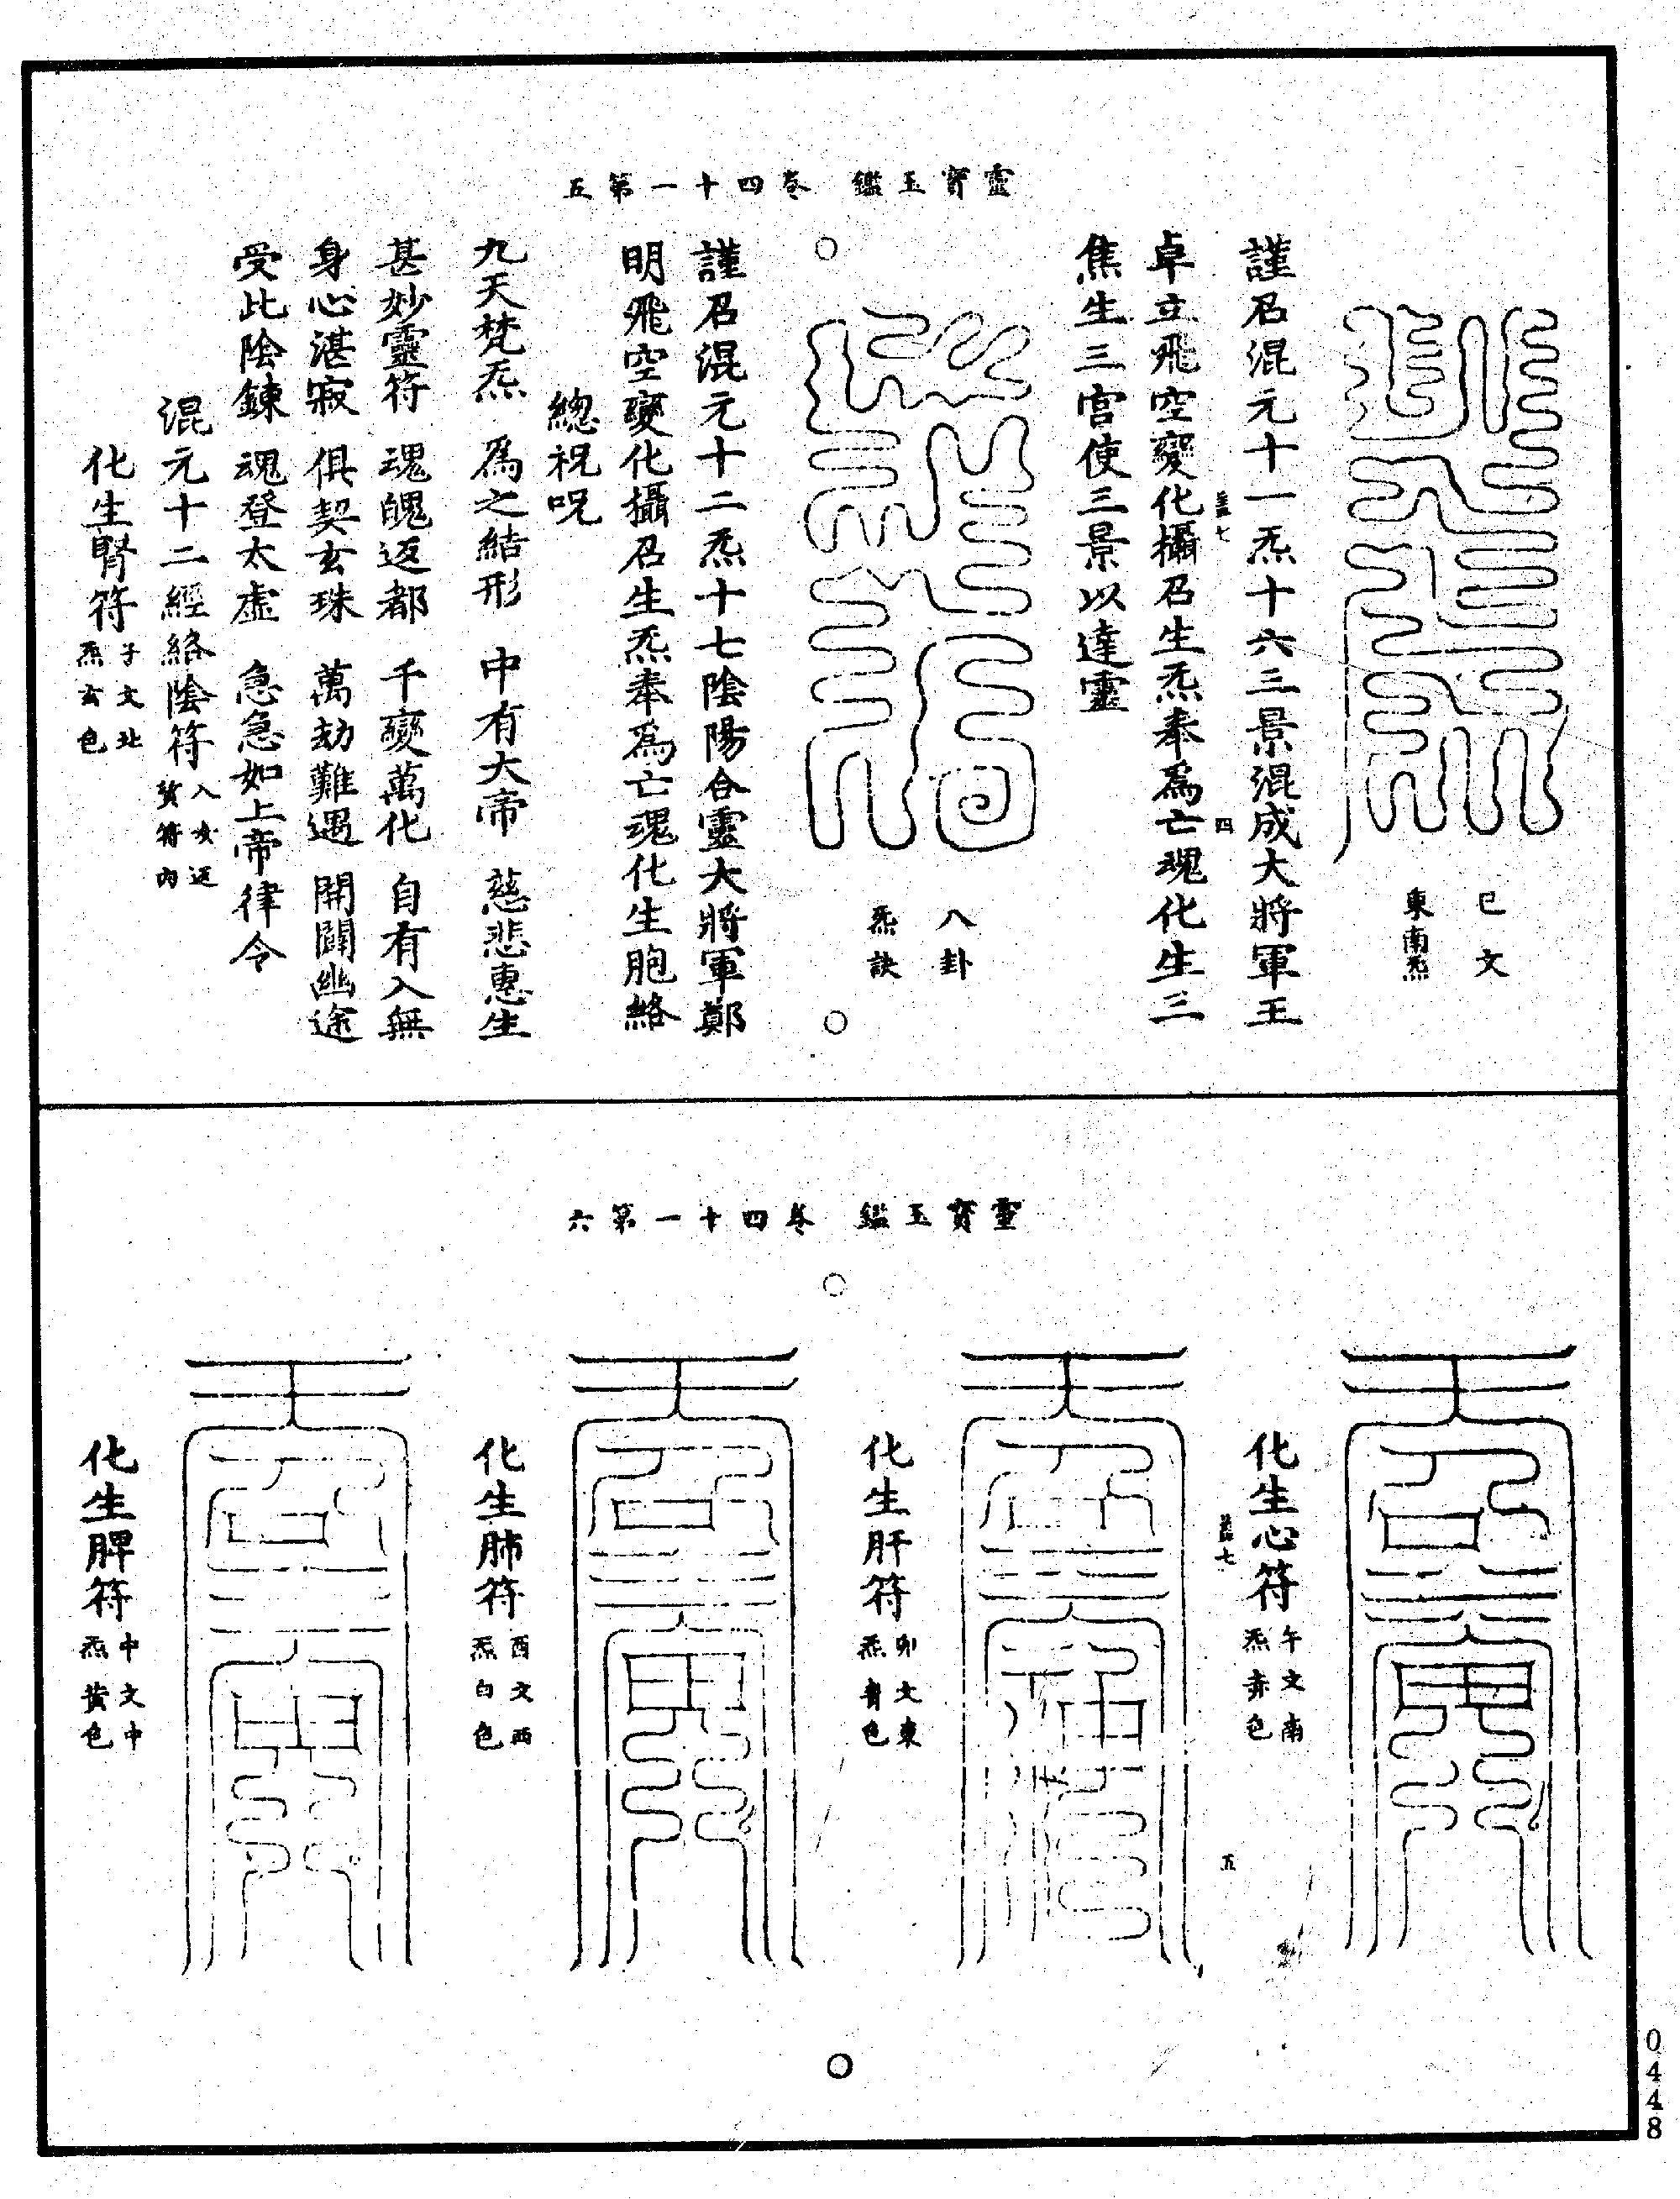 靈寶玉鑑 卷四十一第五
巳文
東南炁
謹召混元十一炁十六三景混成大將軍王
卓立飛空變化攝召生炁奉為亡魂化生三
焦生三宮使三景以達靈
八卦
炁訣
謹召混元十二炁十七陰陽合靈大將軍鄭
明飛空變化攝召生炁奉為亡魂化生胞絡
總祝呪
九天梵炁 為之結形 中有大帝 慈悲惠生
甚妙靈符 魂魄返都 千變萬化 自有入無
身心湛寂 俱契玄珠 萬劫難遇 開闢幽途
受此陰鍊 魂登太虛 急急如上帝律令
混元十二經絡陰符
化生腎符 子文北炁玄色
靈寶玉鑑 卷四十一第六
化生心符 午文南炁赤色
五
化生肝符 卯文東炁青色
化生肺符 酉文西炁白色
化生脾符 中文中炁黃色
0448